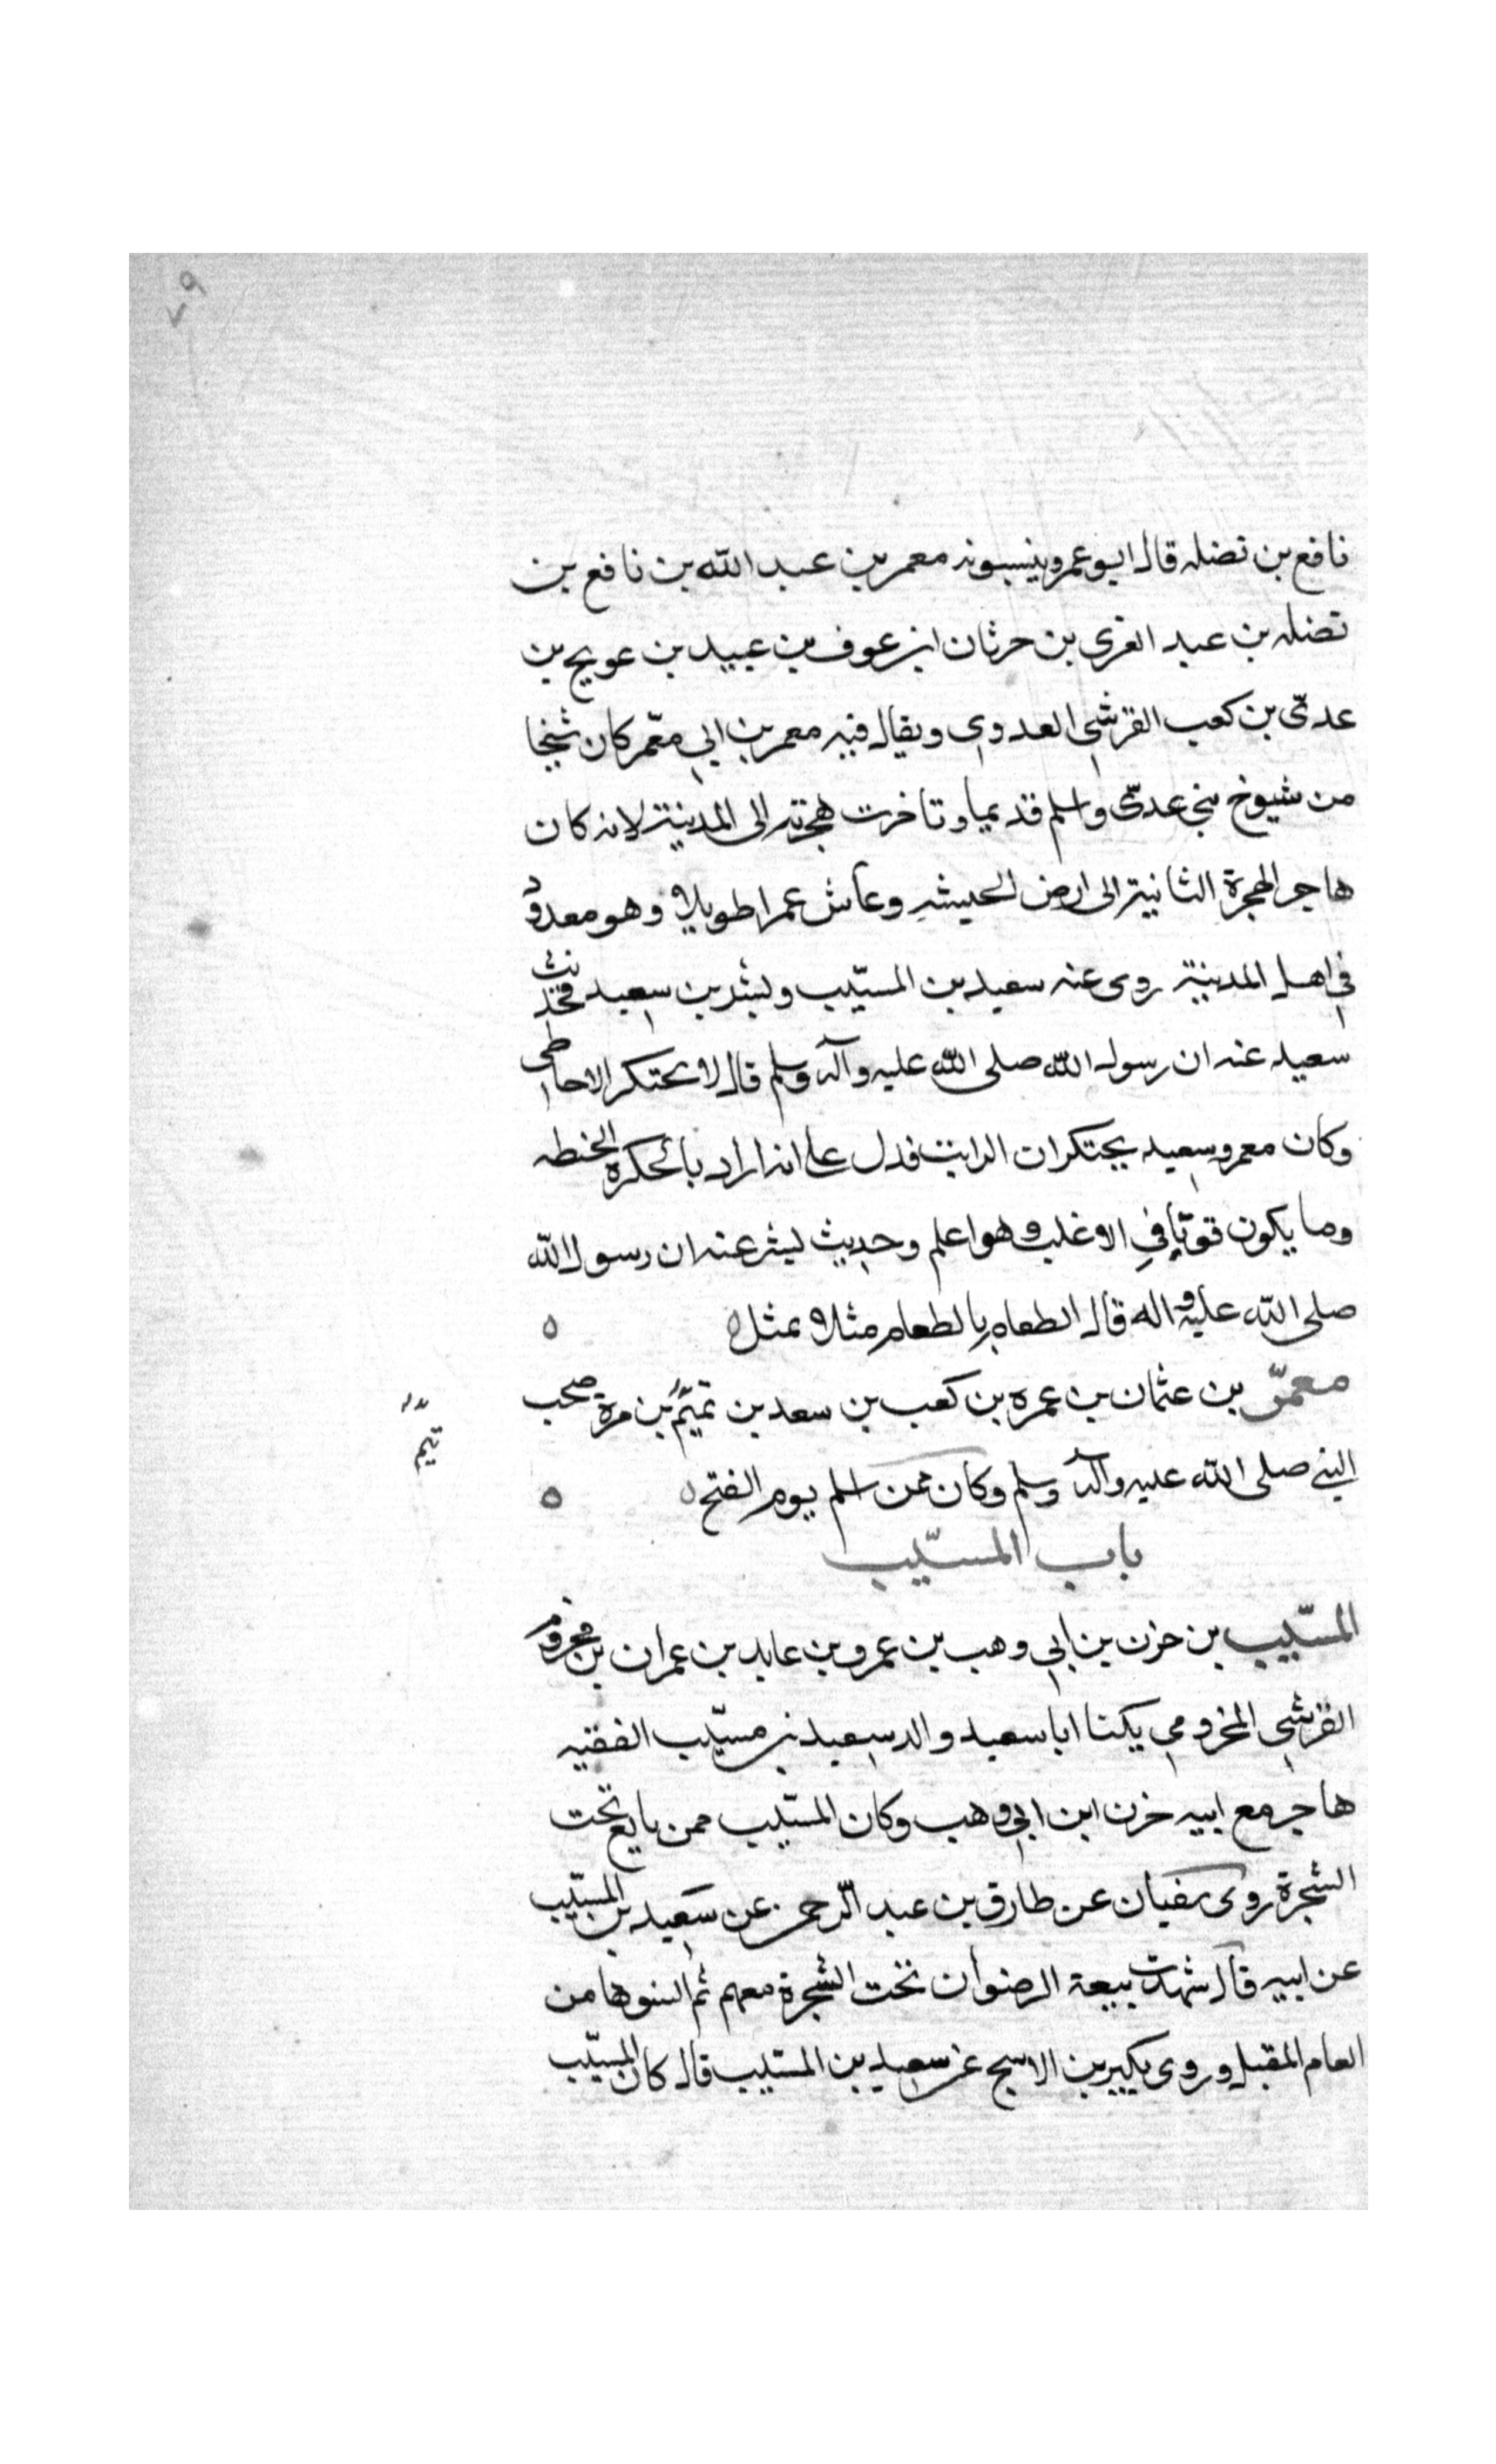 ٧٩
نافع بن نضله قال ابو عمر وينسبونه معمر بن عبد الله بن نافع بن
نضله بن عبد العزى بن حرثان ابن عوف بن عبيد بن عويج بن
عدىّ بن كعب القرشي العدوي ويقال فيه معمر بن ابي معمّر كان شيخا
من شيوخ بني عدىّ واسلم قديما وتاخرت هجرته الى المدينة لانه كان
هاجر الهجرة الثانية الى ارض الحبشه وعاش عمرا طويلا وهو معدود
في اهل المدينة روى عنه سعيد بن المسيّب وبشر بن سعيد فحديث
سعيد عنه ان رسول الله صلى الله عليه وآله وسلم قال لا يحتكر الا خاطى
وكان معمر وسعيد يحتكران الزيت فدل على انه اراد بالحكره الحنطه
وما يكون قوتا في الاغلب وهو اعلم وحديث بشر عنه ان رسول الله
صلى الله عليه واله قال الطعام بالطعام مثلا بمثل ٥ ٥
معمرّ بن عثمان بن عمره بن كعب بن سعد بن تميم بن مرة صحب
تيم
النبي صلى الله عليه وآله وسلم وكان ممن اسلم يوم الفتح ٥ ٥
باب المسيّب
المسيّب بن حزن بن ابي وهب بن عمرو بن عايد بن عمران بن مخزوم
القرشي المخزومي يكنا ابا سعيد والد سعيد بن مسيّب الفقيه
هاجر مع ابيه حزن ابن ابي وهب وكان المسيّب ممن بايع تحت
الشجرة روى سفيان عن طارق بن عبد الرّحمن عن سعيد بن المسيّب
عن ابيه قال شهدت بيعة الرضوان تحت الشجرة معهم ثم انسوها من
العام المقبل وروى بكير بن الاشج عن سعيد بن المسيّب قال كان المسيّب